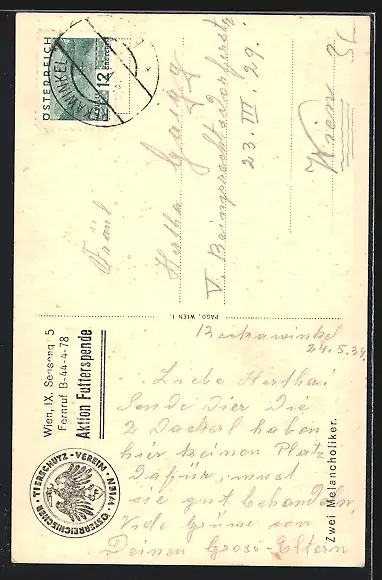 Wien, IX. Sensеng. 5
Fernruf B-44-4-78
Aktion Futterspende
ÖSTERREICHISCHER · TIERSCHUTZ-VEREIN · WIEN ·
Rekawinkel
24.5.34.
Liebe Hertha!
Sende Dier Die
2 Dackerl haben
hier keinen Platz
Dafür, must
sie gut behandeln
Viele Grüsse von
Deinen Gross-Eltern
Zwei Melancholiker.
PAGO, WIEN I.
ÖSTERREICH
12
GROSCHEN
Fräul.
Hertha
V.
23. III. 29.
Wien